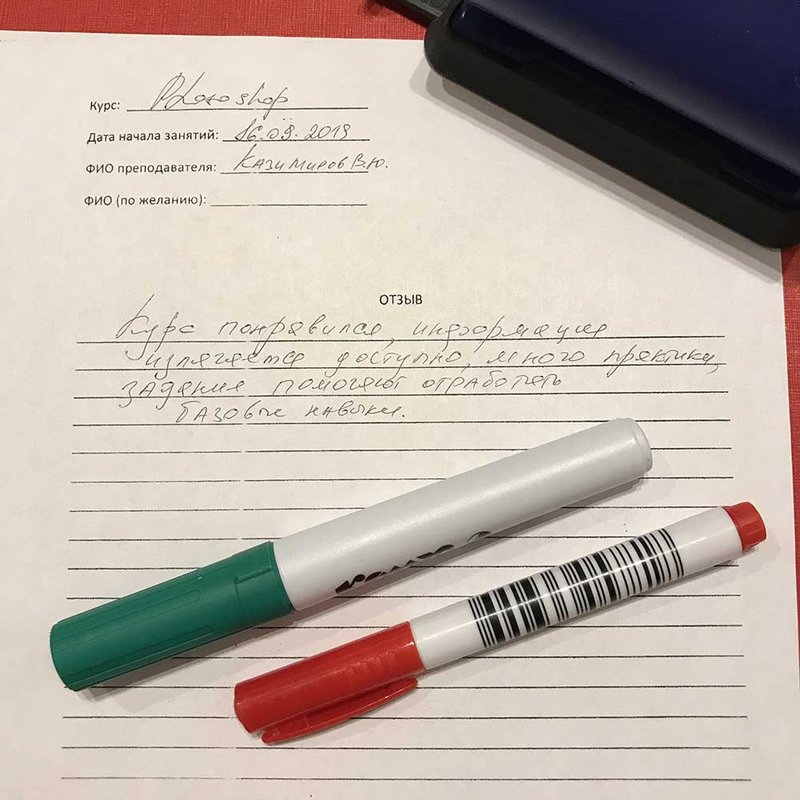 Курс: Photoshop
Дата начала занятий: 16.09.2019
ФИО преподавателя: Казимиров В.Ю.
ФИО (по желанию):
ОТЗЫВ
Курс понравился, информация
излагается доступно, много практики,
задания помогают отработать
базовые навыки.